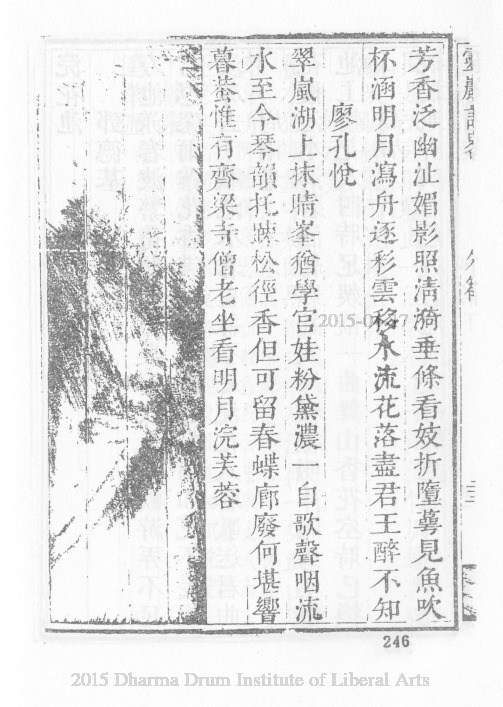 芳香泛幽沚媚影照清漪垂條看妓折墮蕚見魚吹
杯涵明月瀉舟逐彩雲移水流花落盡君王醉不知
廖孔悅
翠嵐湖上抹晴峯猶學宮娃粉黛濃 自歌聲咽流
水至今琴韻托踈松徑香但可留春蝶廊廢何堪響
暮蛩惟有齊梁寺僧老坐看明月浣芙蓉
2015-0
246
2015 Dharma Drum Institute of Liberal Arts